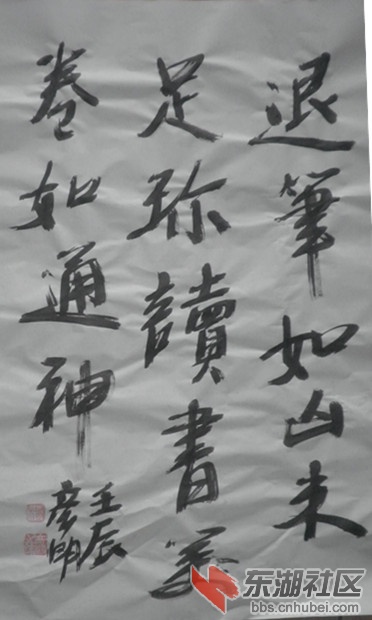 退筆如山未
足珎讀書萬
卷如通神
壬辰
彦明
东湖社区
bbs.cnhubei.com